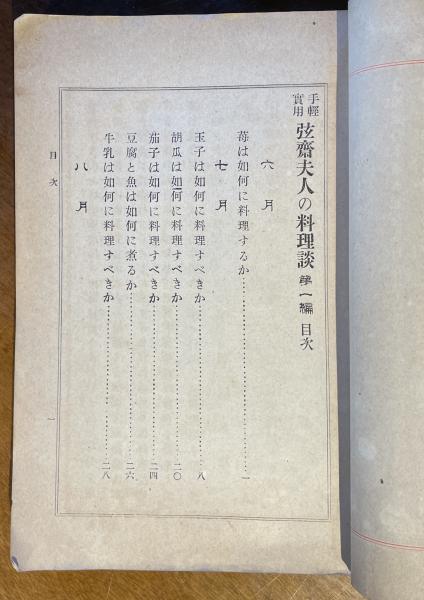 手輕實用 弦齋夫人の料理談 第一編 目次
六月
苺は如何に料理するか………………一
七月
玉子は如何に料理すべきか………………八
胡瓜は如何に料理すべきか………………二〇
茄子は如何に料理すべきか………………二四
豆腐と魚は如何に煮るか………………二六
牛乳は如何に料理すべきか………………二八
八月
目次
一